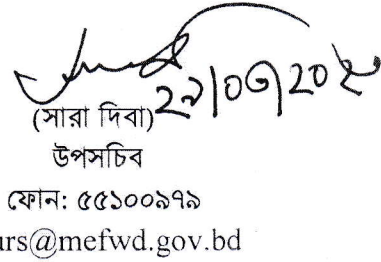 (সারা দিবা)
উপসচিব
ফোন: ৫৫১০০৯৭৯
urs@mefwd.gov.bd